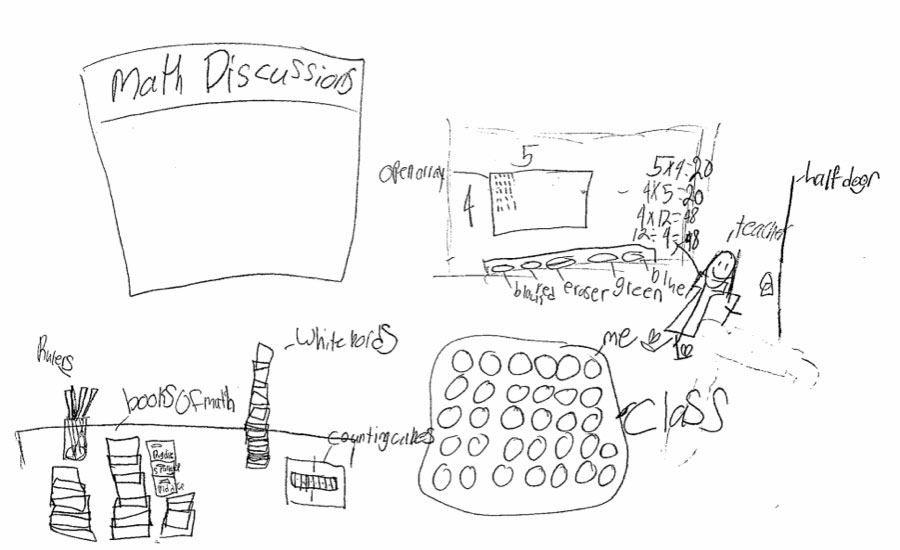 Math Discussions
5
open array
4
5x4=20
4x5=20
4x12=48
12÷4=48
half door
teacher
black
red
eraser
green
blue
me
class
Rulers
books of math
Whitebords
counting cubes